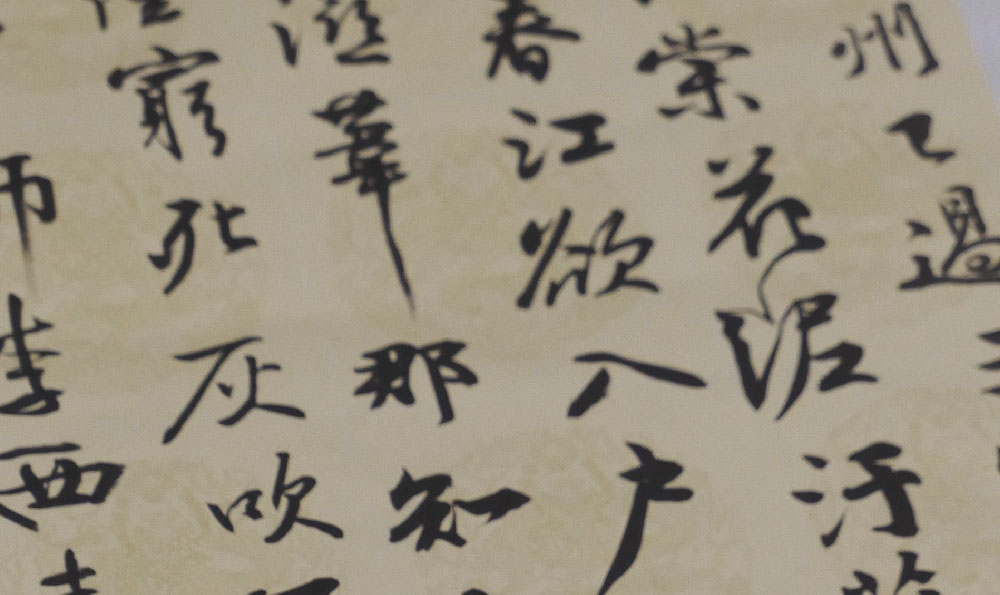 州已過
棠花泥汙
春江欲入户
濕葦那知
窮死灰吹
李西